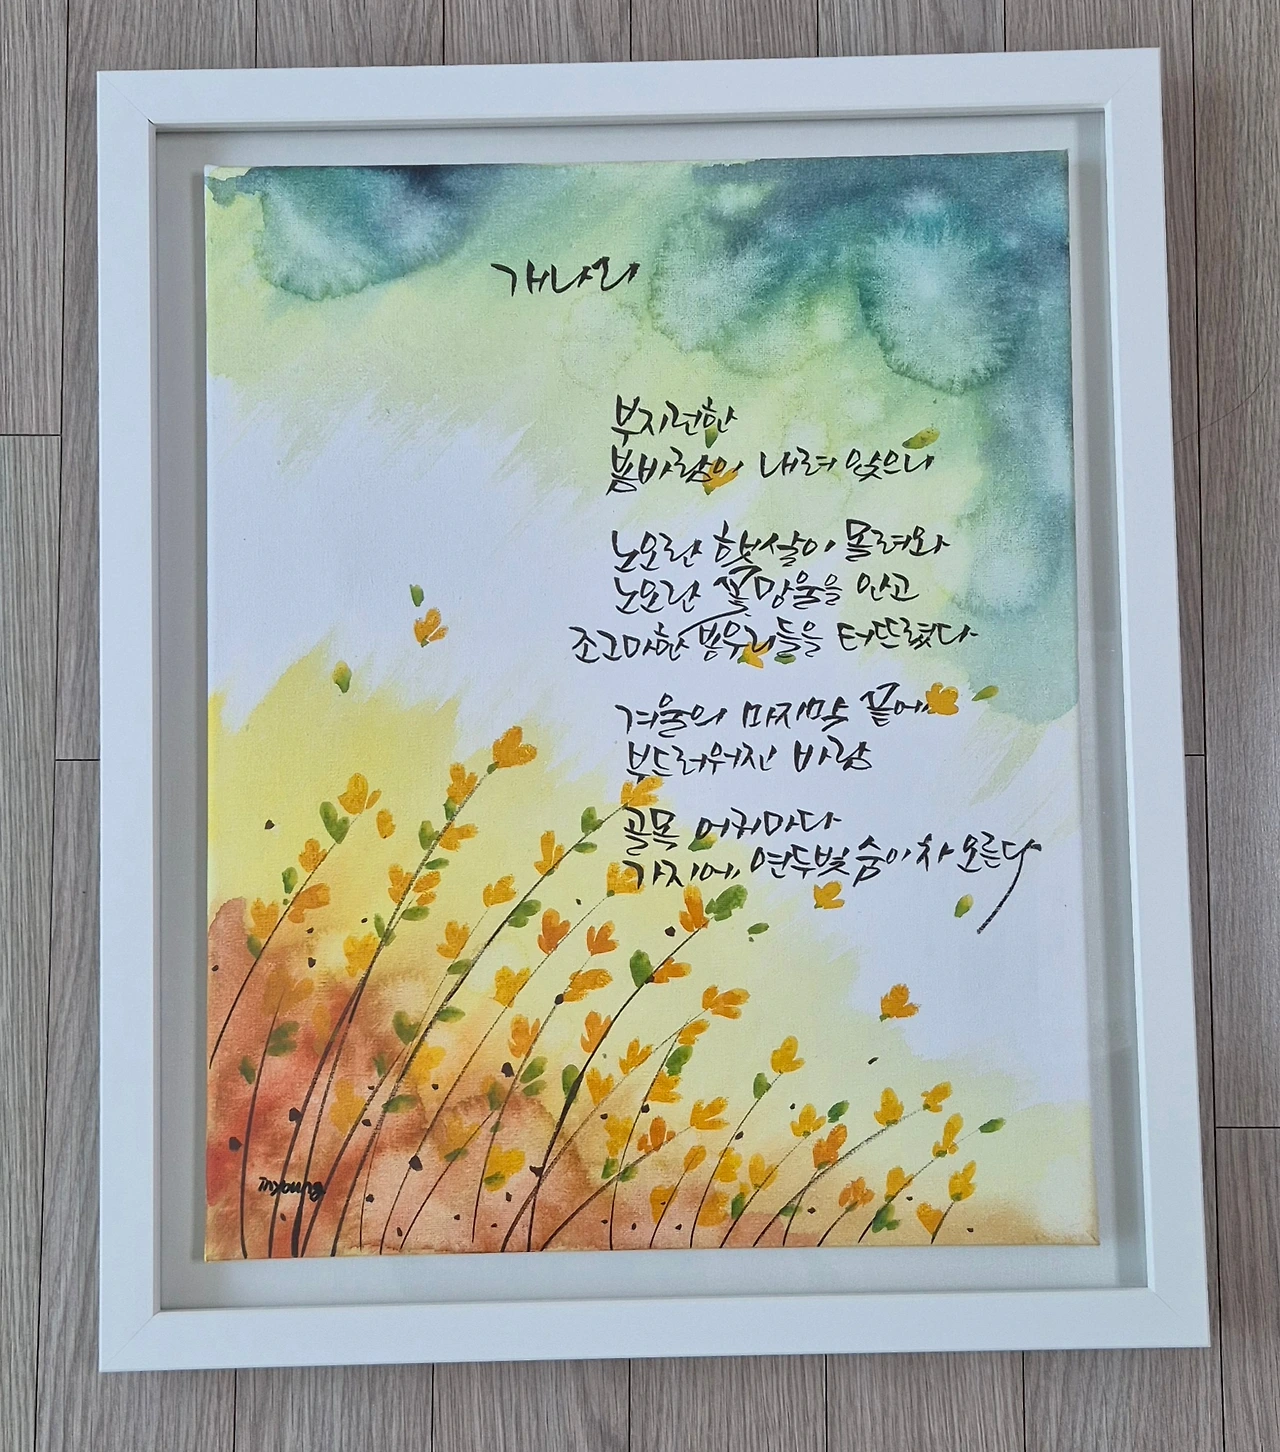 개나리
부지런한
봄바람이 내려 앉으니
노오란 햇살이 몰려와
노오란 꽃망울을 안고
조그마한 봉우리들을 터뜨렸다
겨울의 마지막 끝에
부드러워진 바람
골목 어귀마다
가지에, 연두빛 숨이 차 오른다
Inyoung